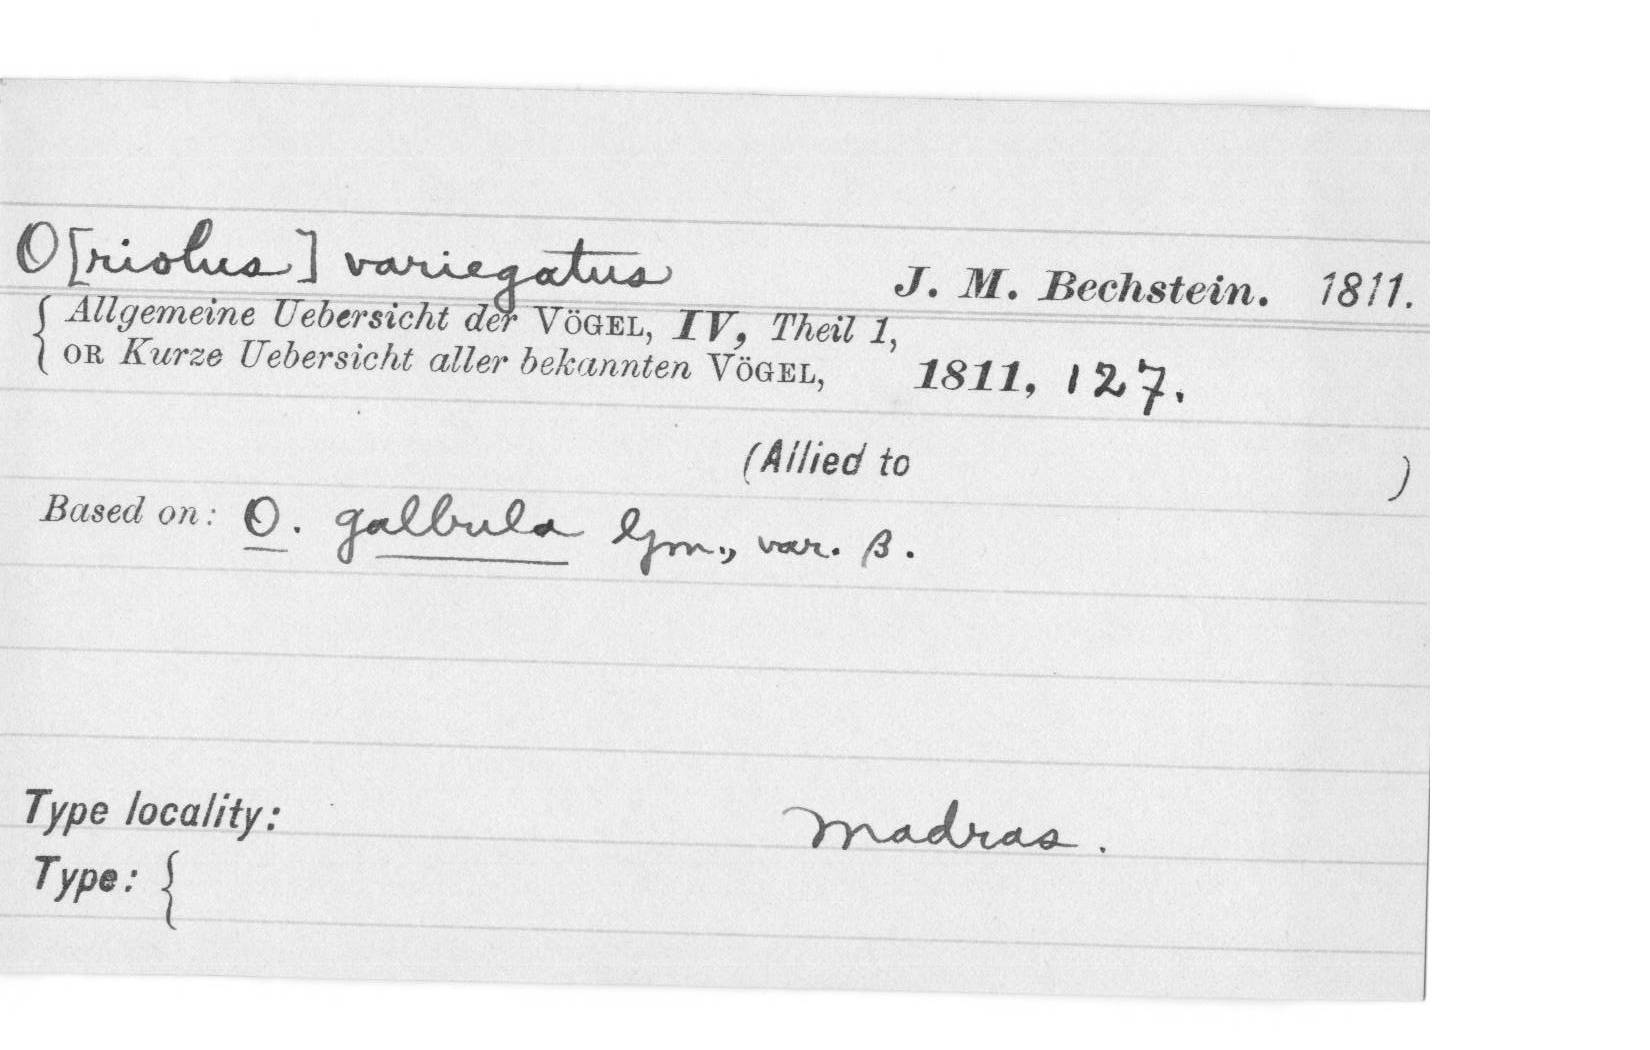 O[riolus] variegatus J. M. Bechstein. 1811.
{ Allgemeine Uebersicht der VÖGEL, IV, Theil 1,
OR Kurze Uebersicht aller bekannten VÖGEL, 1811, 127.
(Allied to )
Based on: O. galbula Gm., var. β.
Type locality: Madras.
Type: {